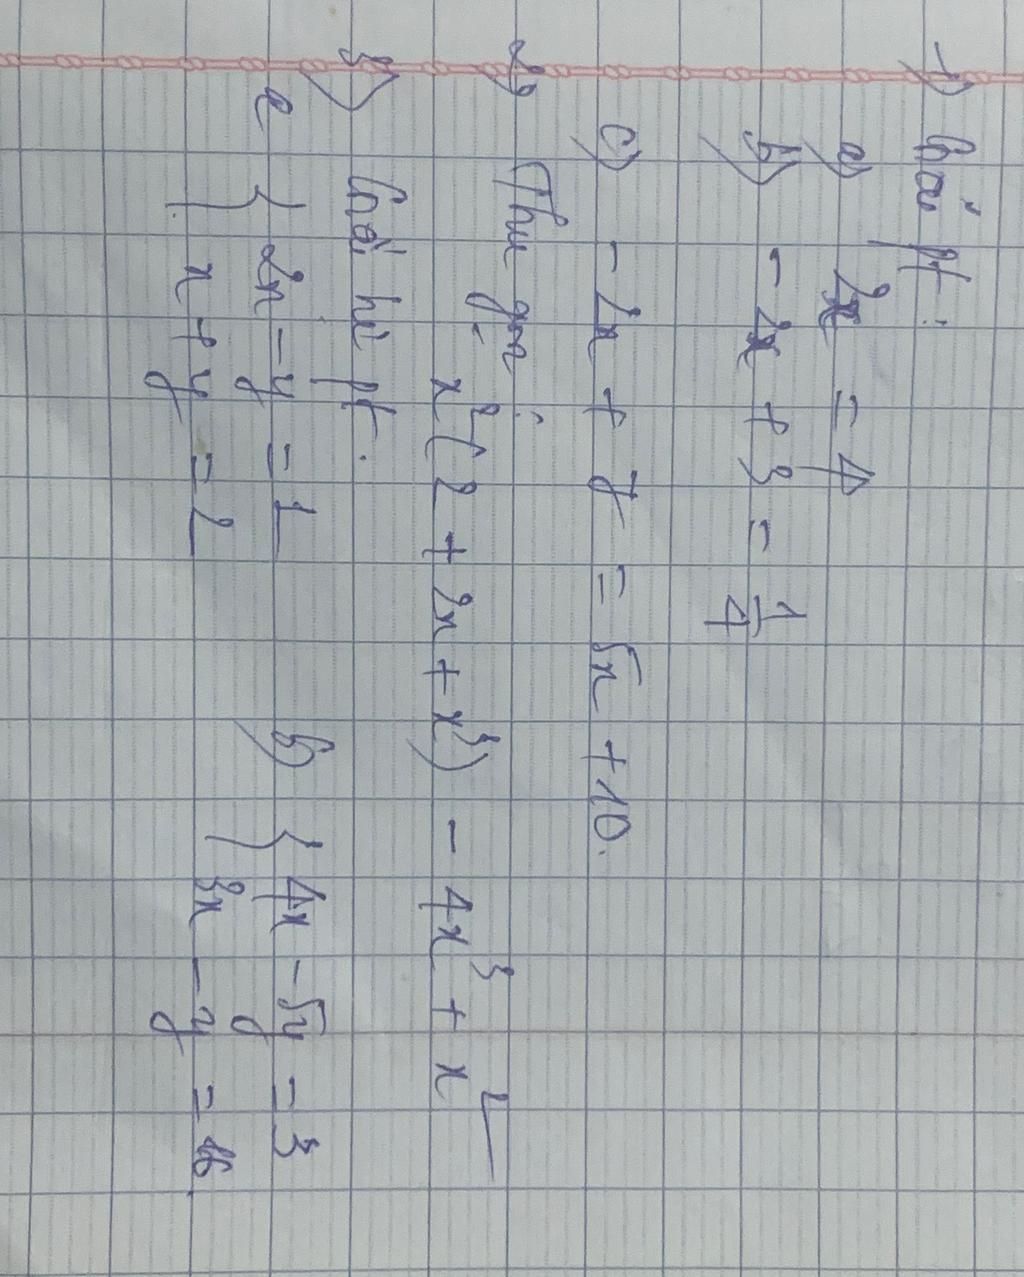 1) Giải pt :
a) 2x = 4
b) - 2x + 3 = 1/4
c) - 2x + 7 = 5x + 10.
2) Thu gọn :
x²(2 + 2x + x³) - 4x³ + x²
3) Giải hệ pt.
a { 2x - y = 1
x + y = 2
b) { 4x - 5y = 3
3x - y = 16